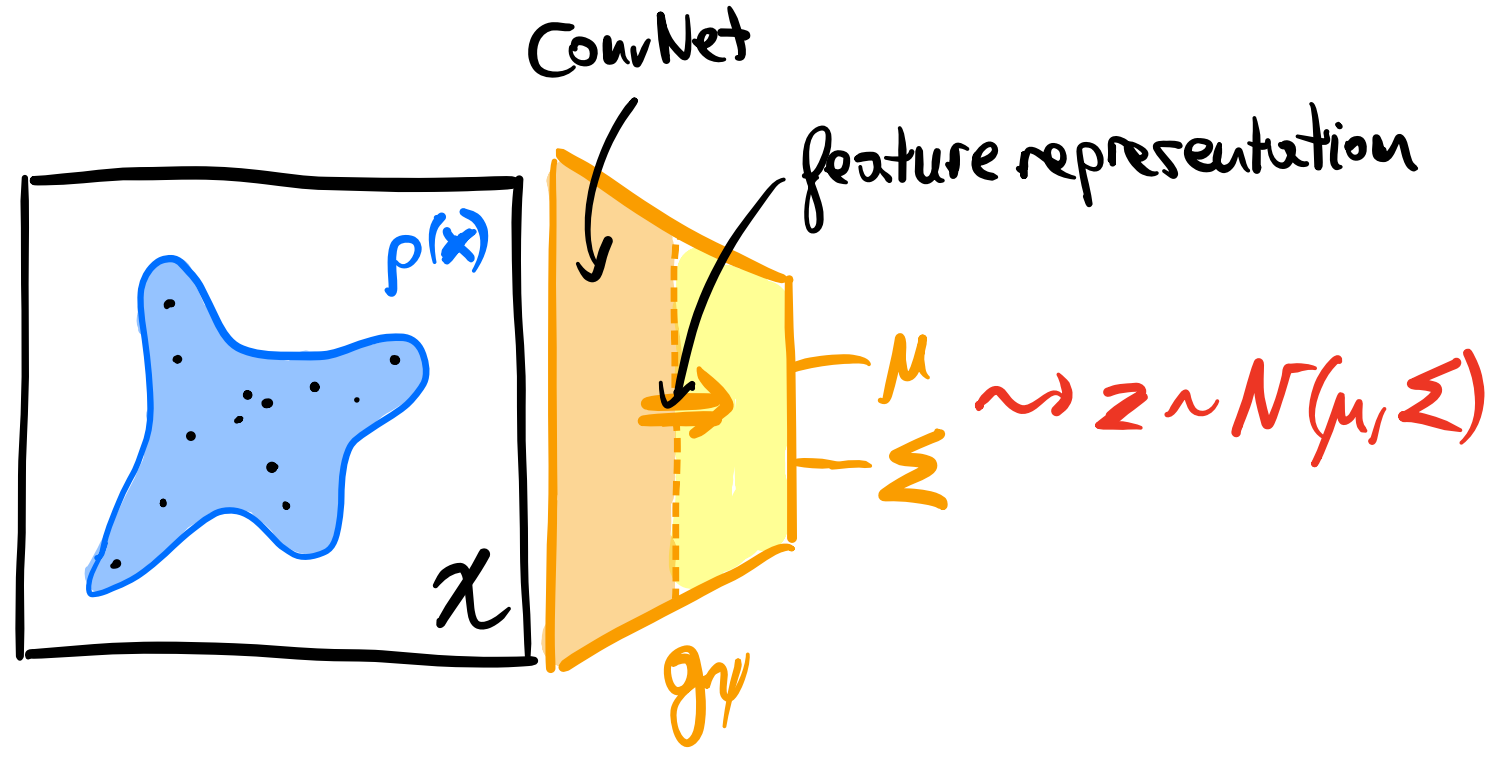 ConvNet
feature representation
p(x)
μ
⇝ z ~ N(μ, Σ)
Σ
X
gψ